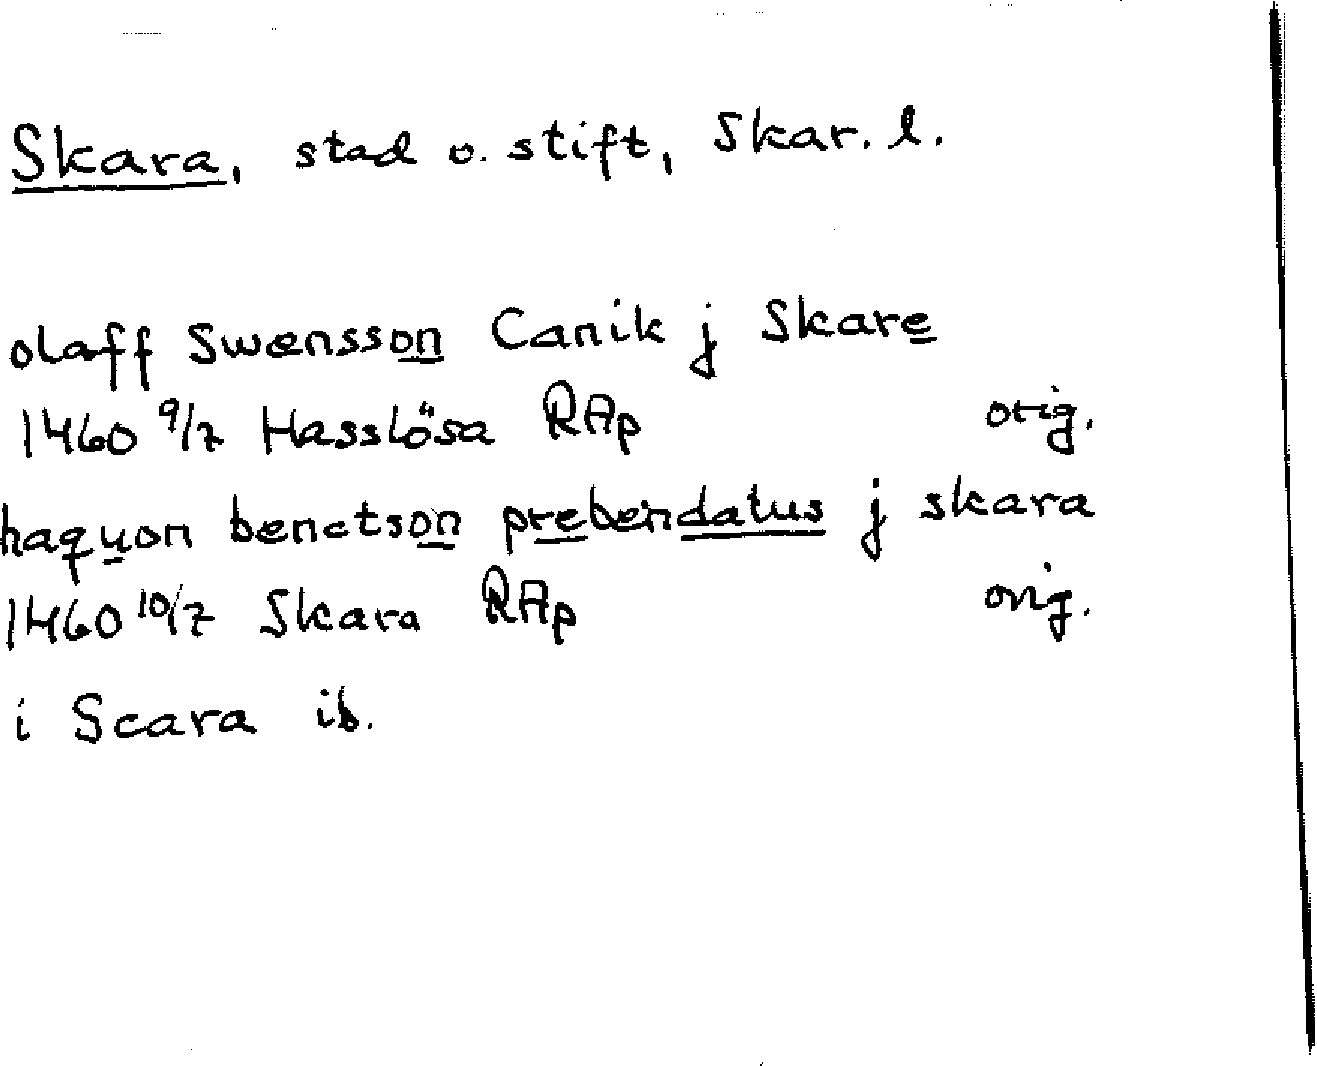 Skara, stad o. stift, Skar. l.
olaff Swensson Canik j Skare
1460 9/7 Hasslösa RAp orig.
haquon benctson prebendatus j skara
1460 10/7 Skara RAp orig.
i Scara ib.